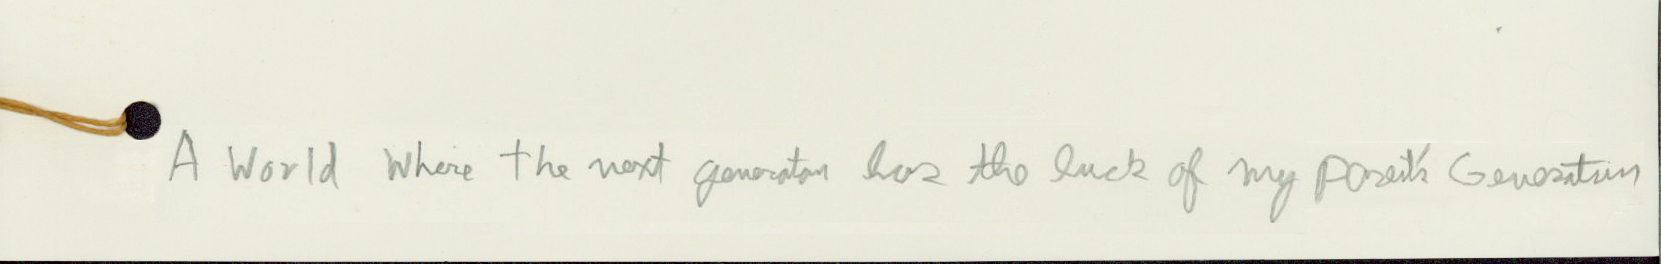 A World Where the next generation has the luck of my parent's Generation